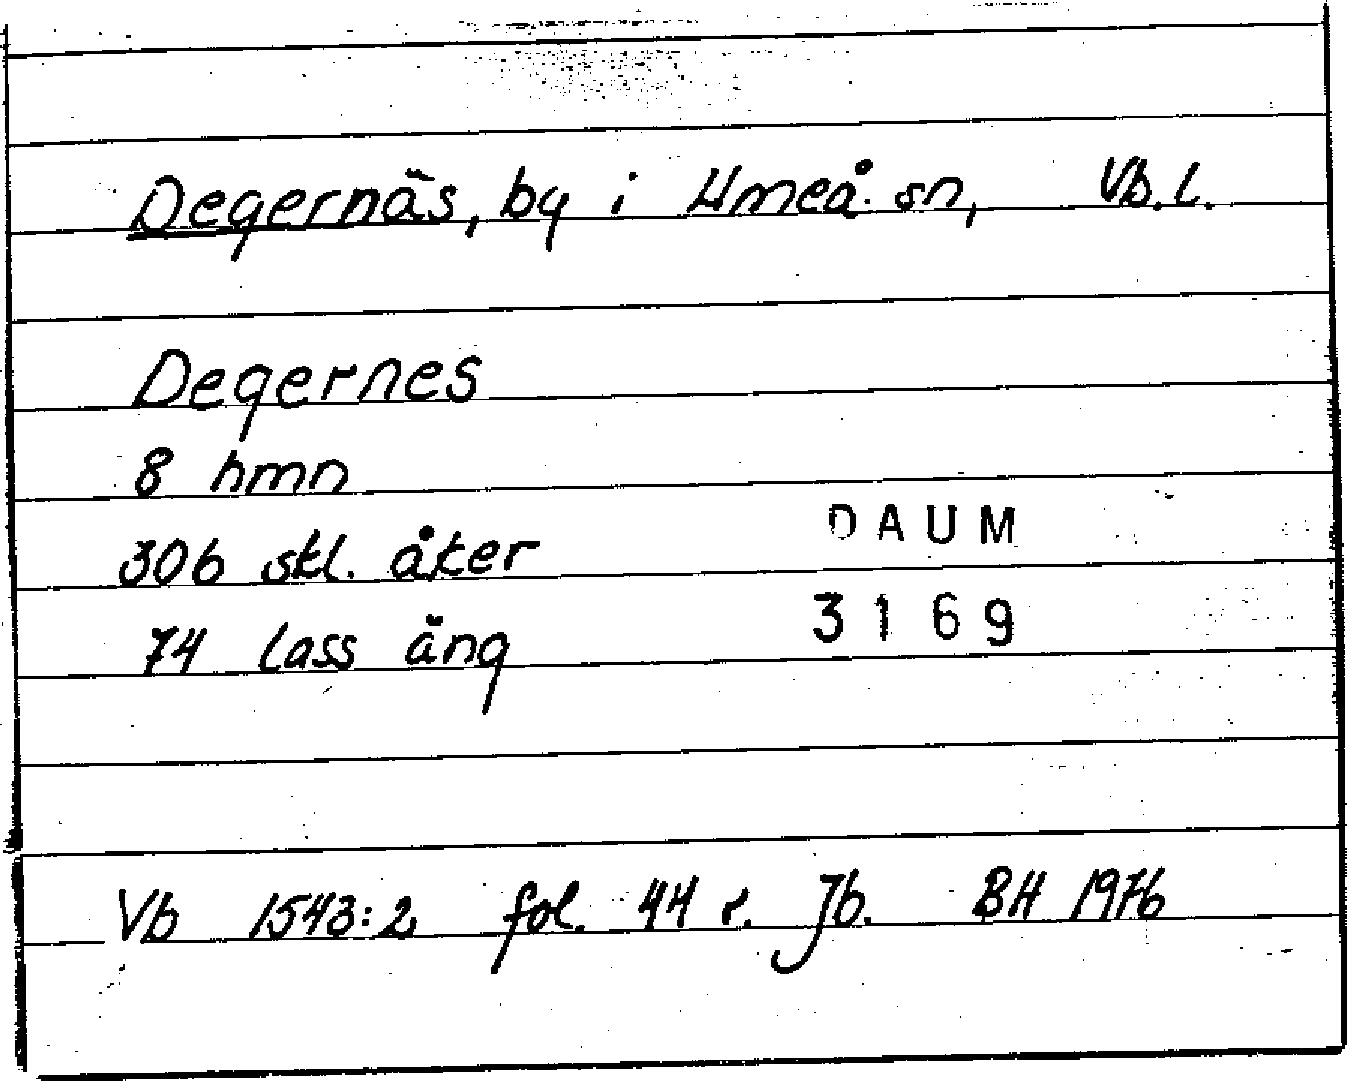 Degernäs, by i Umeå sn, Vb.l.
Degernes
8 hmn
306 skl. åker
DAUM
74 lass äng
3169
Vb 1543:2 fol. 44 r. Jb. BH 1976